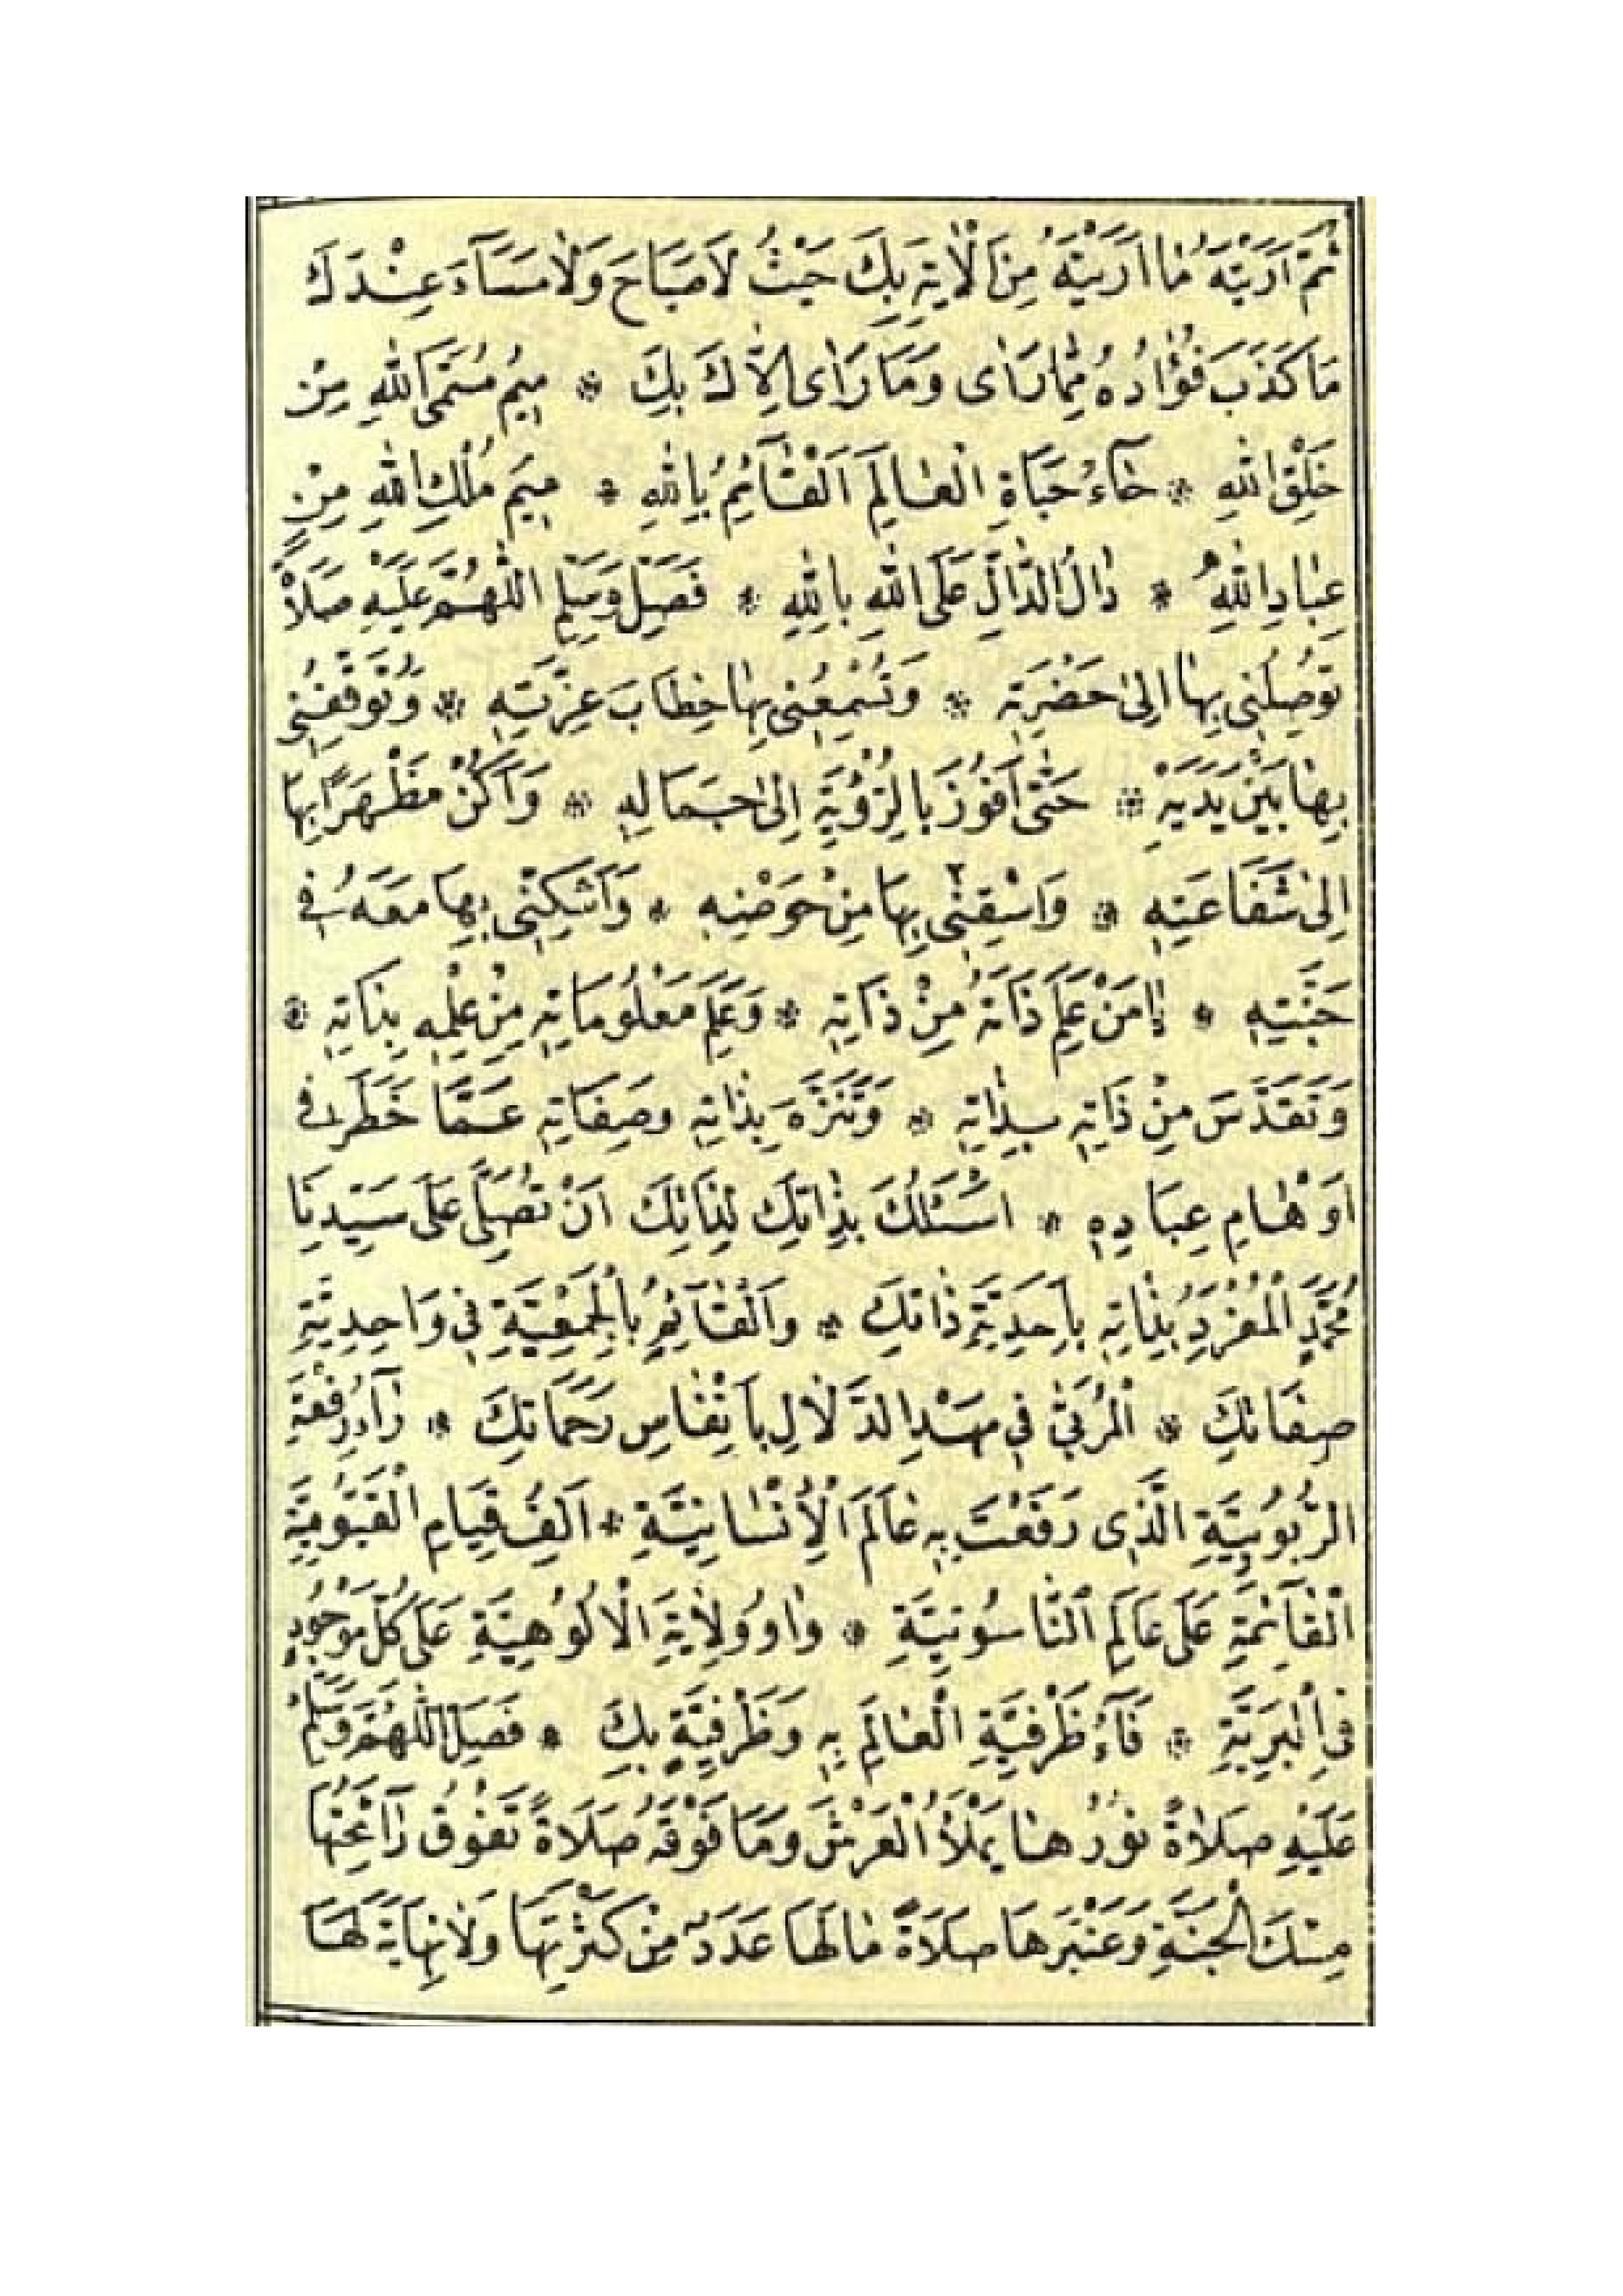 ثُمَّ اَرَيْتَهُ مٰا اَرَيْتَهُ مِنَ الْاٰيَةِ بِكَ حَيْثُ لَا صَبَاحَ وَلٰا مَسَآءَ عِنْدَكَ
مَا كَذَبَ فُؤٰادُهُ مِمَّا رَاٰى وَمَا رَاٰى اِلَّاكَ بِكَ ۞ مِيمُ مُسَمَّى اللهِ مِنْ
خَلْقِ اللهِ ۞ حٰآءُ حَيَاةِ الْعٰالَمِ اَلْقٰآئِمُ بِاللهِ ۞ مِيمَ مُلْكِ اللهِ مِنْ
عِبٰادِ اللهِ ۞ دٰالُ الدّٰالِّ عَلَى اللهِ بِاللهِ ۞ فَصَلِّ وَسَلِّمِ اللّٰهُمَّ عَلَيْهِ صَلَاةً
تُوصِلُنِى بِهٰا اِلىٰ حَضْرَتِهِ ۞ وَتُسْمِعُنِى بِهٰا خِطَابَ عِزَّتِهِ ۞ وَتُوَقِّفُنِى
بِهٰا بَيْنَ يَدَيْهِ ۞ حَتّٰى اَفُوزَ بِالرُّؤْيَةِ اِلىٰ جَمَالِهِ ۞ وَاَكُنْ مَظْهَرًا بِهَا
اِلىٰ شَفَاعَتِهِ ۞ وَاسْقِنِى بِهَا مِنْ حَوْضِهِ ۞ وَاَسْكِنِّى بِهَا مَعَهُ فِى
جَنَّتِهِ ۞ يٰا مَنْ عَلِمَ ذَاتَهُ مِنْ ذَاتِهِ ۞ وَعَلِمَ مَعْلُومَاتِهِ مِنْ عِلْمِهِ بِذَاتِهِ ۞
وَتَقَدَّسَ مِنْ ذَاتِهِ بِذٰاتِهِ ۞ وَتَنَزَّهَ بِذٰاتِهِ وَصِفَاتِهِ عَمَّا خَطَرَ فِى
اَوْهٰامِ عِبَادِهِ ۞ اَسْئَلُكَ بِذٰاتِكَ لِذَاتِكَ اَنْ تُصَلِّىَ عَلىٰ سَيِّدِنَا
مُحَمَّدٍ الْمُفْرَدِ بِذٰاتِهِ بِاَحَدِيَّةِ ذٰاتِكَ ۞ وَالْقٰآئِمِ بِالْجَمْعِيَّةِ فِى وَاحِدِيَّةِ
صِفَاتِكَ ۞ اَلْمُرَبّٰى فِى مَهْدِ الدَّلٰالِ بِاَنْفٰاسِ رَحَمَاتِكَ ۞ رٰآءُ رِفْعَةِ
الرُّبُوبِيَّةِ الَّذِى رَفَعْتَ بِهِ عٰالَمَ الْاِنْسَانِيَّةِ ۞ اَلِفُ قِيَامِ الْقَيُّومِيَّةِ
الْقٰآئِمَةِ عَلىٰ عَالَمِ النَّاسُوتِيَّةِ ۞ وٰاوُ وِلٰايَةِ الْاُلُوهِيَّةِ عَلىٰ كُلِّ مَوْجُودٍ
فِى الْبَرِيَّةِ ۞ فَآءُ ظَرْفِيَّةِ الْعٰالَمِ بِهِ وَظَرْفِيَّةٍ بِكَ ۞ فَصَلِّ اللّٰهُمَّ وَسَلِّمْ
عَلَيْهِ صَلٰاةً نُورُهٰا يَمْلَأُ الْعَرْشَ وَمَا فَوْقَهُ صَلَاةً تَفُوقُ رَآئِحَتُهَا
مِسْكَ الْجَنَّةِ وَعَنْبَرَهَا صَلَاةً مٰا لَهَا عَدَدٌ مِنْ كَثْرَتِهَا وَلٰا نِهَايَةَ لَهَا